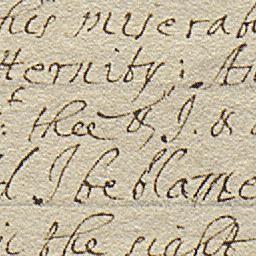 his miserab
tternity; An
thee & I. &
d I be blame
the sight